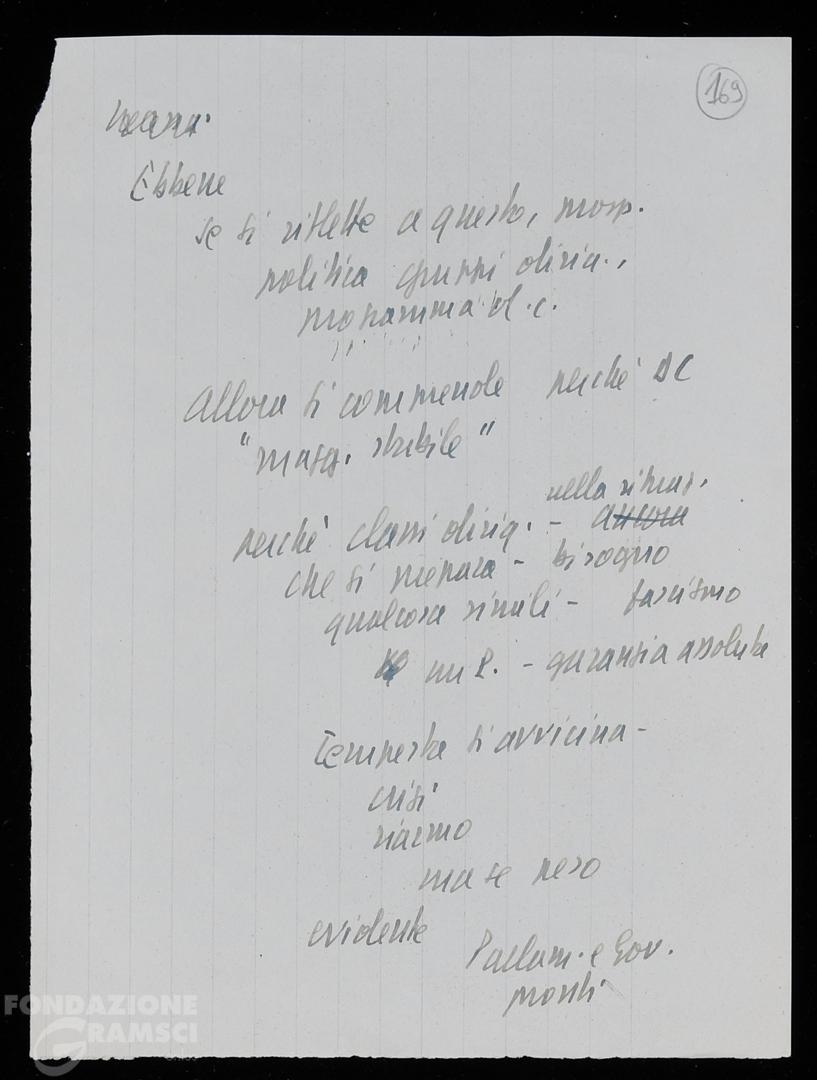 169
Ebbene
se si riflette a questo, prosp.
politica gruppi dirig.,
programma d.c.
Allora si comprende perché DC
"magg. stabile"
nella situaz.
perché classi dirig. - ancora
che si prepara - bisogno
qualcosa simile - fascismo
un P. - garanzia assoluta
Tempesta si avvicina -
crisi
riarmo
ma se
evidente
Parlam. e Gov.
pronti
FONDAZIONE
GRAMSCI